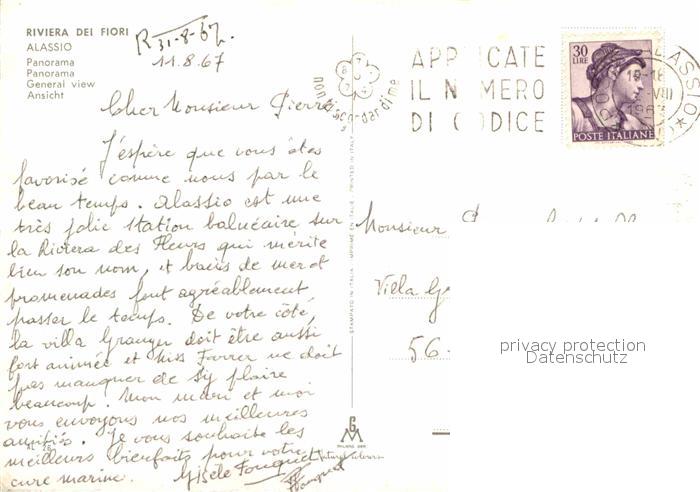 RIVIERA DEI FIORI
ALASSIO
Panorama
Panorama
General view
Ansicht
R 31-8-67.
11.8.67
Cher Monsieur Pierre
J'espère que vous êtes
favorisé comme nous par le
beau temps. Alassio est une
très jolie station balnéaire sur
la Riviera des Fleurs qui mérite
bien son nom, et bains de mer et
promenades font agréablement
passer le temps. De votre côté,
la villa Granger doit être aussi
fort animée et Miss Farrer ne doit
pas manquer de s'y plaire
beaucoup. Mon mari et moi
vous envoyons nos meilleures
amitiés. Je vous souhaite les
meilleurs bienfaits pour votre
cure marine.
Gisèle Fouquet
Fouquet
AL 26
STAMPATO IN ITALIA - IMPRIMÉ EN ITALIE - PRINTED IN ITALY
GM
MILANO
Natural colorors
non ti scordar di me
APPLICATE
IL NUMERO
DI CODICE
30
LIRE
POSTE ITALIANE
ALASSIO
VIII
196
Monsieur
Villa
56
privacy protection
Datenschutz